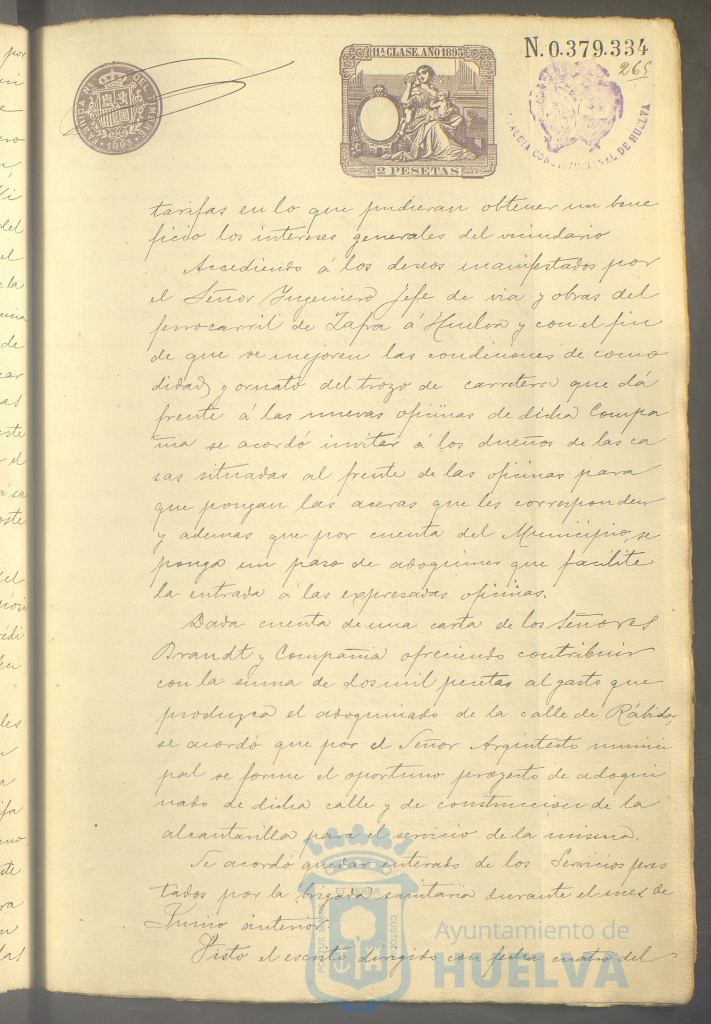 FABRICA NAL DEL TIMBRE
1893
11ª CLASE. AÑO 1893
2 PESETAS
N. 0.379.334
265
ALCALDIA CONSTITUCIONAL DE HUELVA
tarifas en lo que pudieran obtener un bene
ficio los intereses generales del vecindario
Accediendo á los deseos manifestados por
el Señor Ingeniero Jefe de via y obras del
ferrocarril de Zafra á Huelva y con el fin
de que se mejoren las condiciones de como
didad y ornato del trozo de carretera que dá
frente á las nuevas oficinas de dicha Compa
ñia se acordó invitar á los dueños de las ca
sas situadas al frente de las oficinas para
que pongan las aceras que les corresponden
y ademas que por cuenta del Municipio, se
ponga un paso de adoquines que facilite
la entrada á las expresadas oficinas.
Dada cuenta de una carta de los Señores
Brandt y Compañia ofreciendo contribuir
con la suma de dos mil pesetas al gasto que
produzca el adoquinado de la calle de Rábida,
se acordó que por el Señor Arquitecto munici
pal se forme el oportuno proyecto de adoqui
nado de dicha calle y de construccion de la
alcantarilla para el servicio de la misma.
Se acordó quedar enterado de los servicios pres
tados por la brigada sanitaria durante el mes de
Junio anterior.
Visto el escrito dirigido con fecha cuatro del
Ayuntamiento de
HUELVA
PORTUS MARIS
ET TERRAE
CUSTODIA